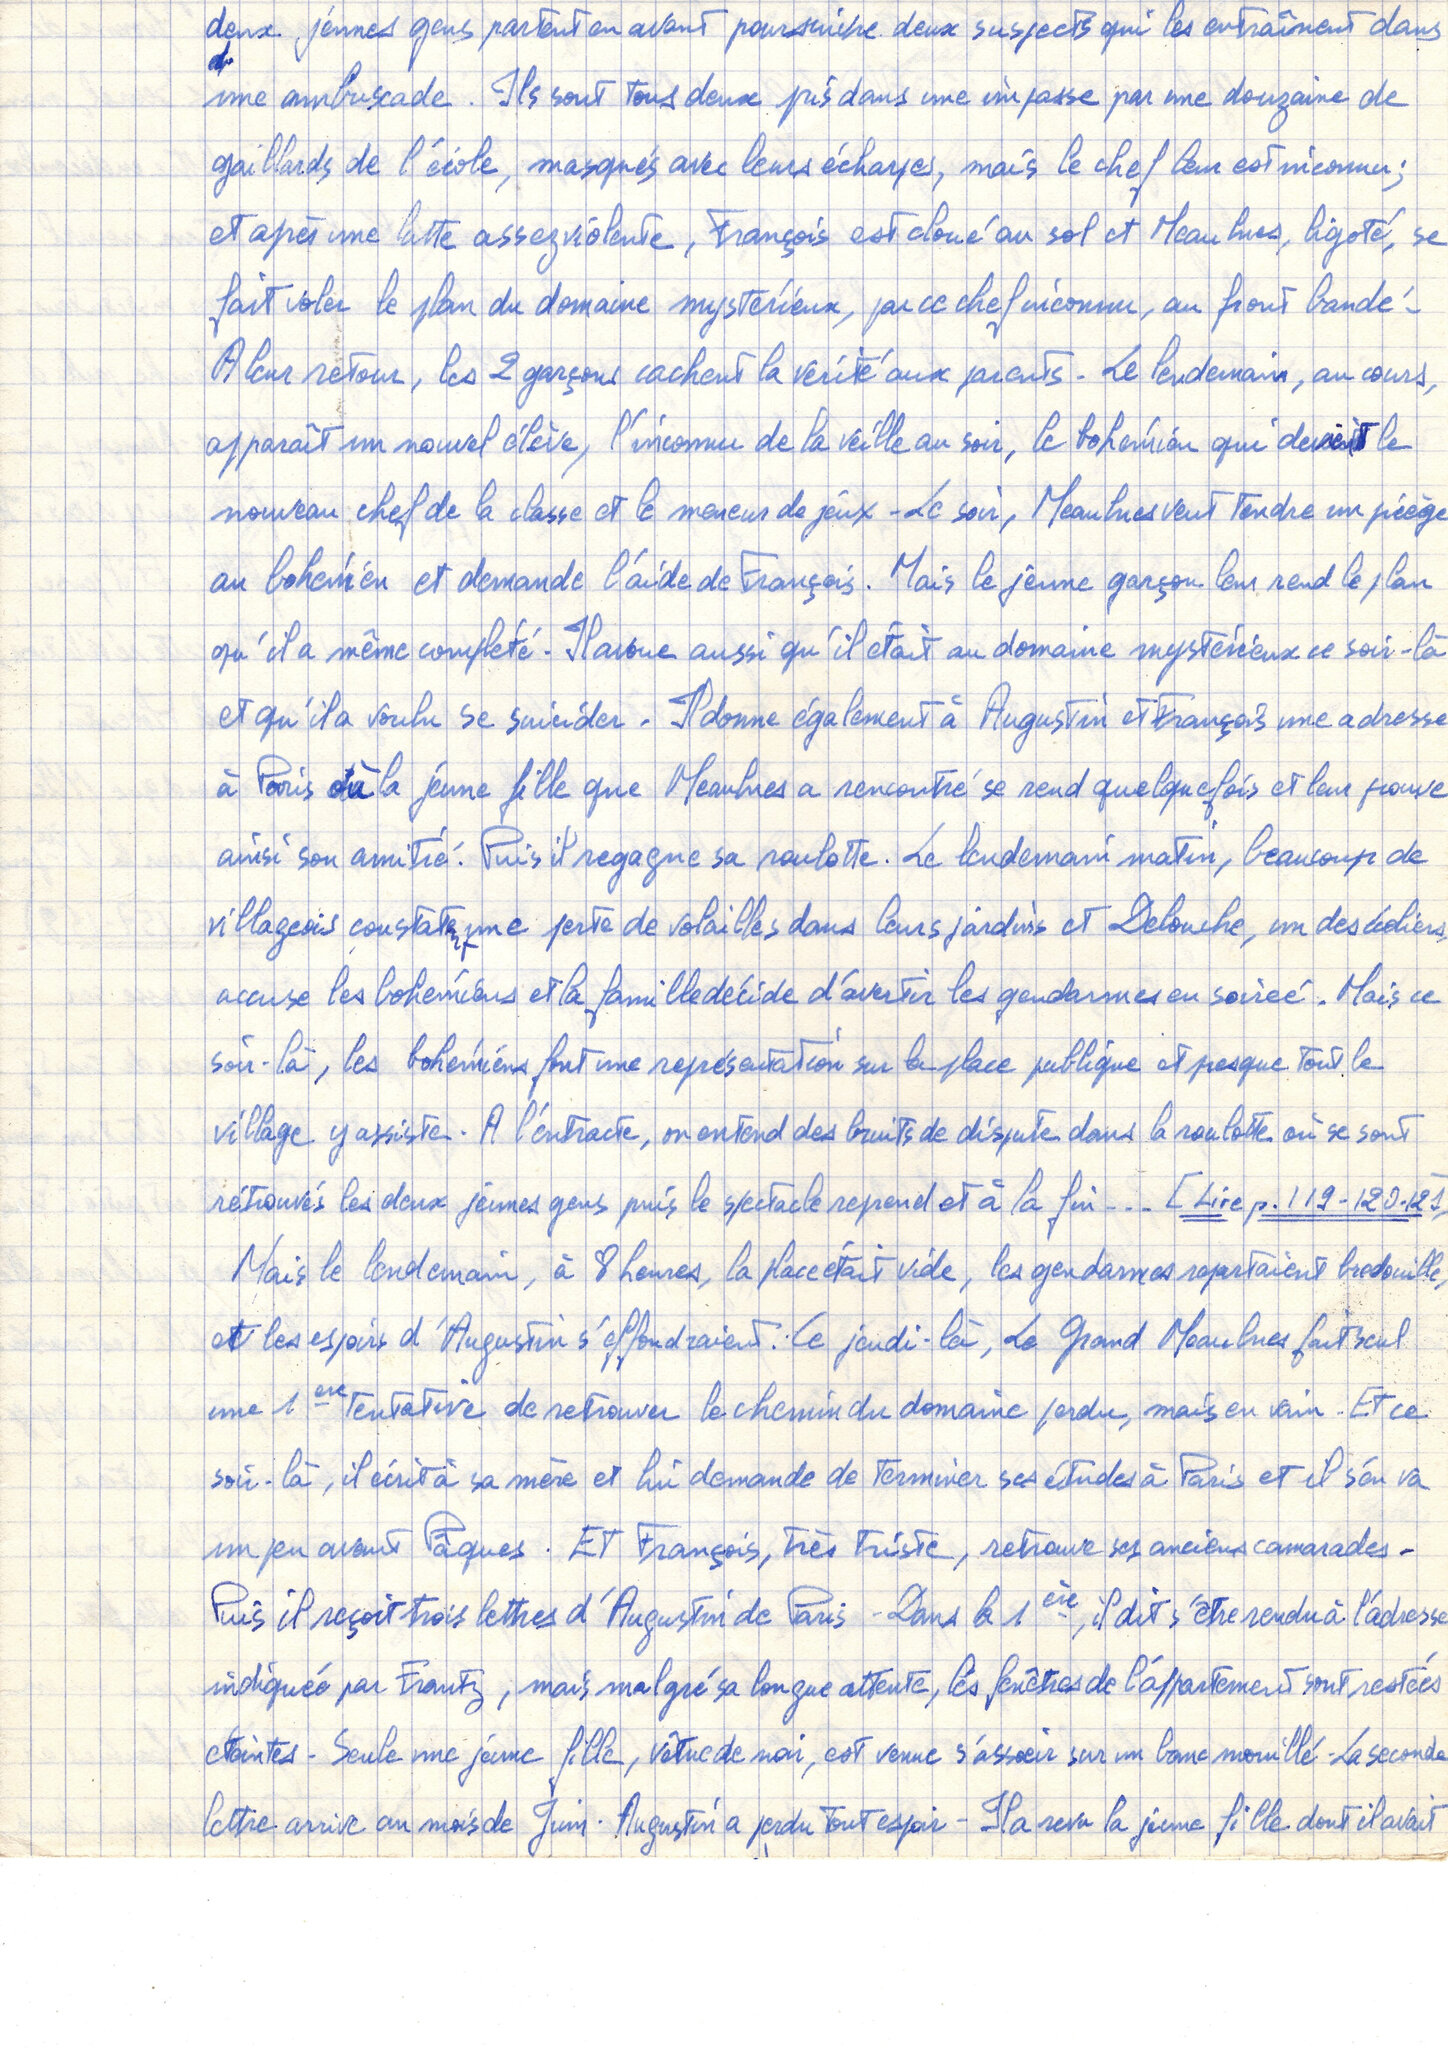 deux jeunes gens partent en avant poursuivre deux suspects qui les entraînent dans
une ambuscade. Ils sont tous deux pris dans une impasse par une douzaine de
gaillards de l'école, masqués avec leurs écharpes, mais le chef leur est inconnu ;
et après une lutte assez violente, François est cloué au sol et Meaulnes, ligoté, se
fait voler le plan du domaine mystérieux, par ce chef inconnu, au front bandé -
A leur retour, les 2 garçons cachent la vérité aux parents - Le lendemain, au cours,
apparaît un nouvel élève, l'inconnu de la veille au soir, le bohémien qui devient le
nouveau chef de la classe et le meneur de jeux - Le soir, Meaulnes veut tendre un piège
au bohémien et demande l'aide de François. Mais le jeune garçon leur rend le plan
qu'il a même completé - Il avoue aussi qu'il était au domaine mystérieux ce soir-là
et qu'il a voulu se suicider - Il donne également à Augustin et François une adresse
à Paris où la jeune fille que Meaulnes a rencontré se rend quelquefois et leur prouve
ainsi son amitié. Puis il regagne sa roulotte. Le lendemain matin, beaucoup de
villageois constatent une perte de volailles dans leurs jardins et Delouche, un des écoliers,
accuse les bohémiens et la famille décide d'avertir les gendarmes en soirée. Mais ce
soir-là, les bohémiens font une représentation sur la place publique et presque tout le
village y assiste - A l'entracte, on entend des bruits de dispute dans la roulotte où se sont
retrouvés les deux jeunes gens puis le spectacle reprend et à la fin --- [Lire p. 119-120-121]
Mais le lendemain, à 8 heures, la place était vide, les gendarmes repartaient bredouille,
et les espoirs d'Augustin s'effondraient. Ce jeudi-là, Le Grand Meaulnes fait seul
une 1ère tentative de retrouver le chemin du domaine perdu, mais en vain - Et ce
soir-là, il écrit à sa mère et lui demande de terminer ses études à Paris et il s'en va
un peu avant Pâques. Et François, très triste, retrouve ses anciens camarades -
Puis il reçoit trois lettres d'Augustin de Paris - Dans la 1ère, il dit s'être rendu à l'adresse
indiquée par Frantz, mais malgré sa longue attente, les fenêtres de l'appartement sont restées
éteintes - Seule une jeune fille, vêtue de noir, est venue s'asseoir sur un banc mouillé - La seconde
lettre arrive au mois de Juin. Augustin a perdu tout espoir - Il a revu la jeune fille dont il avait